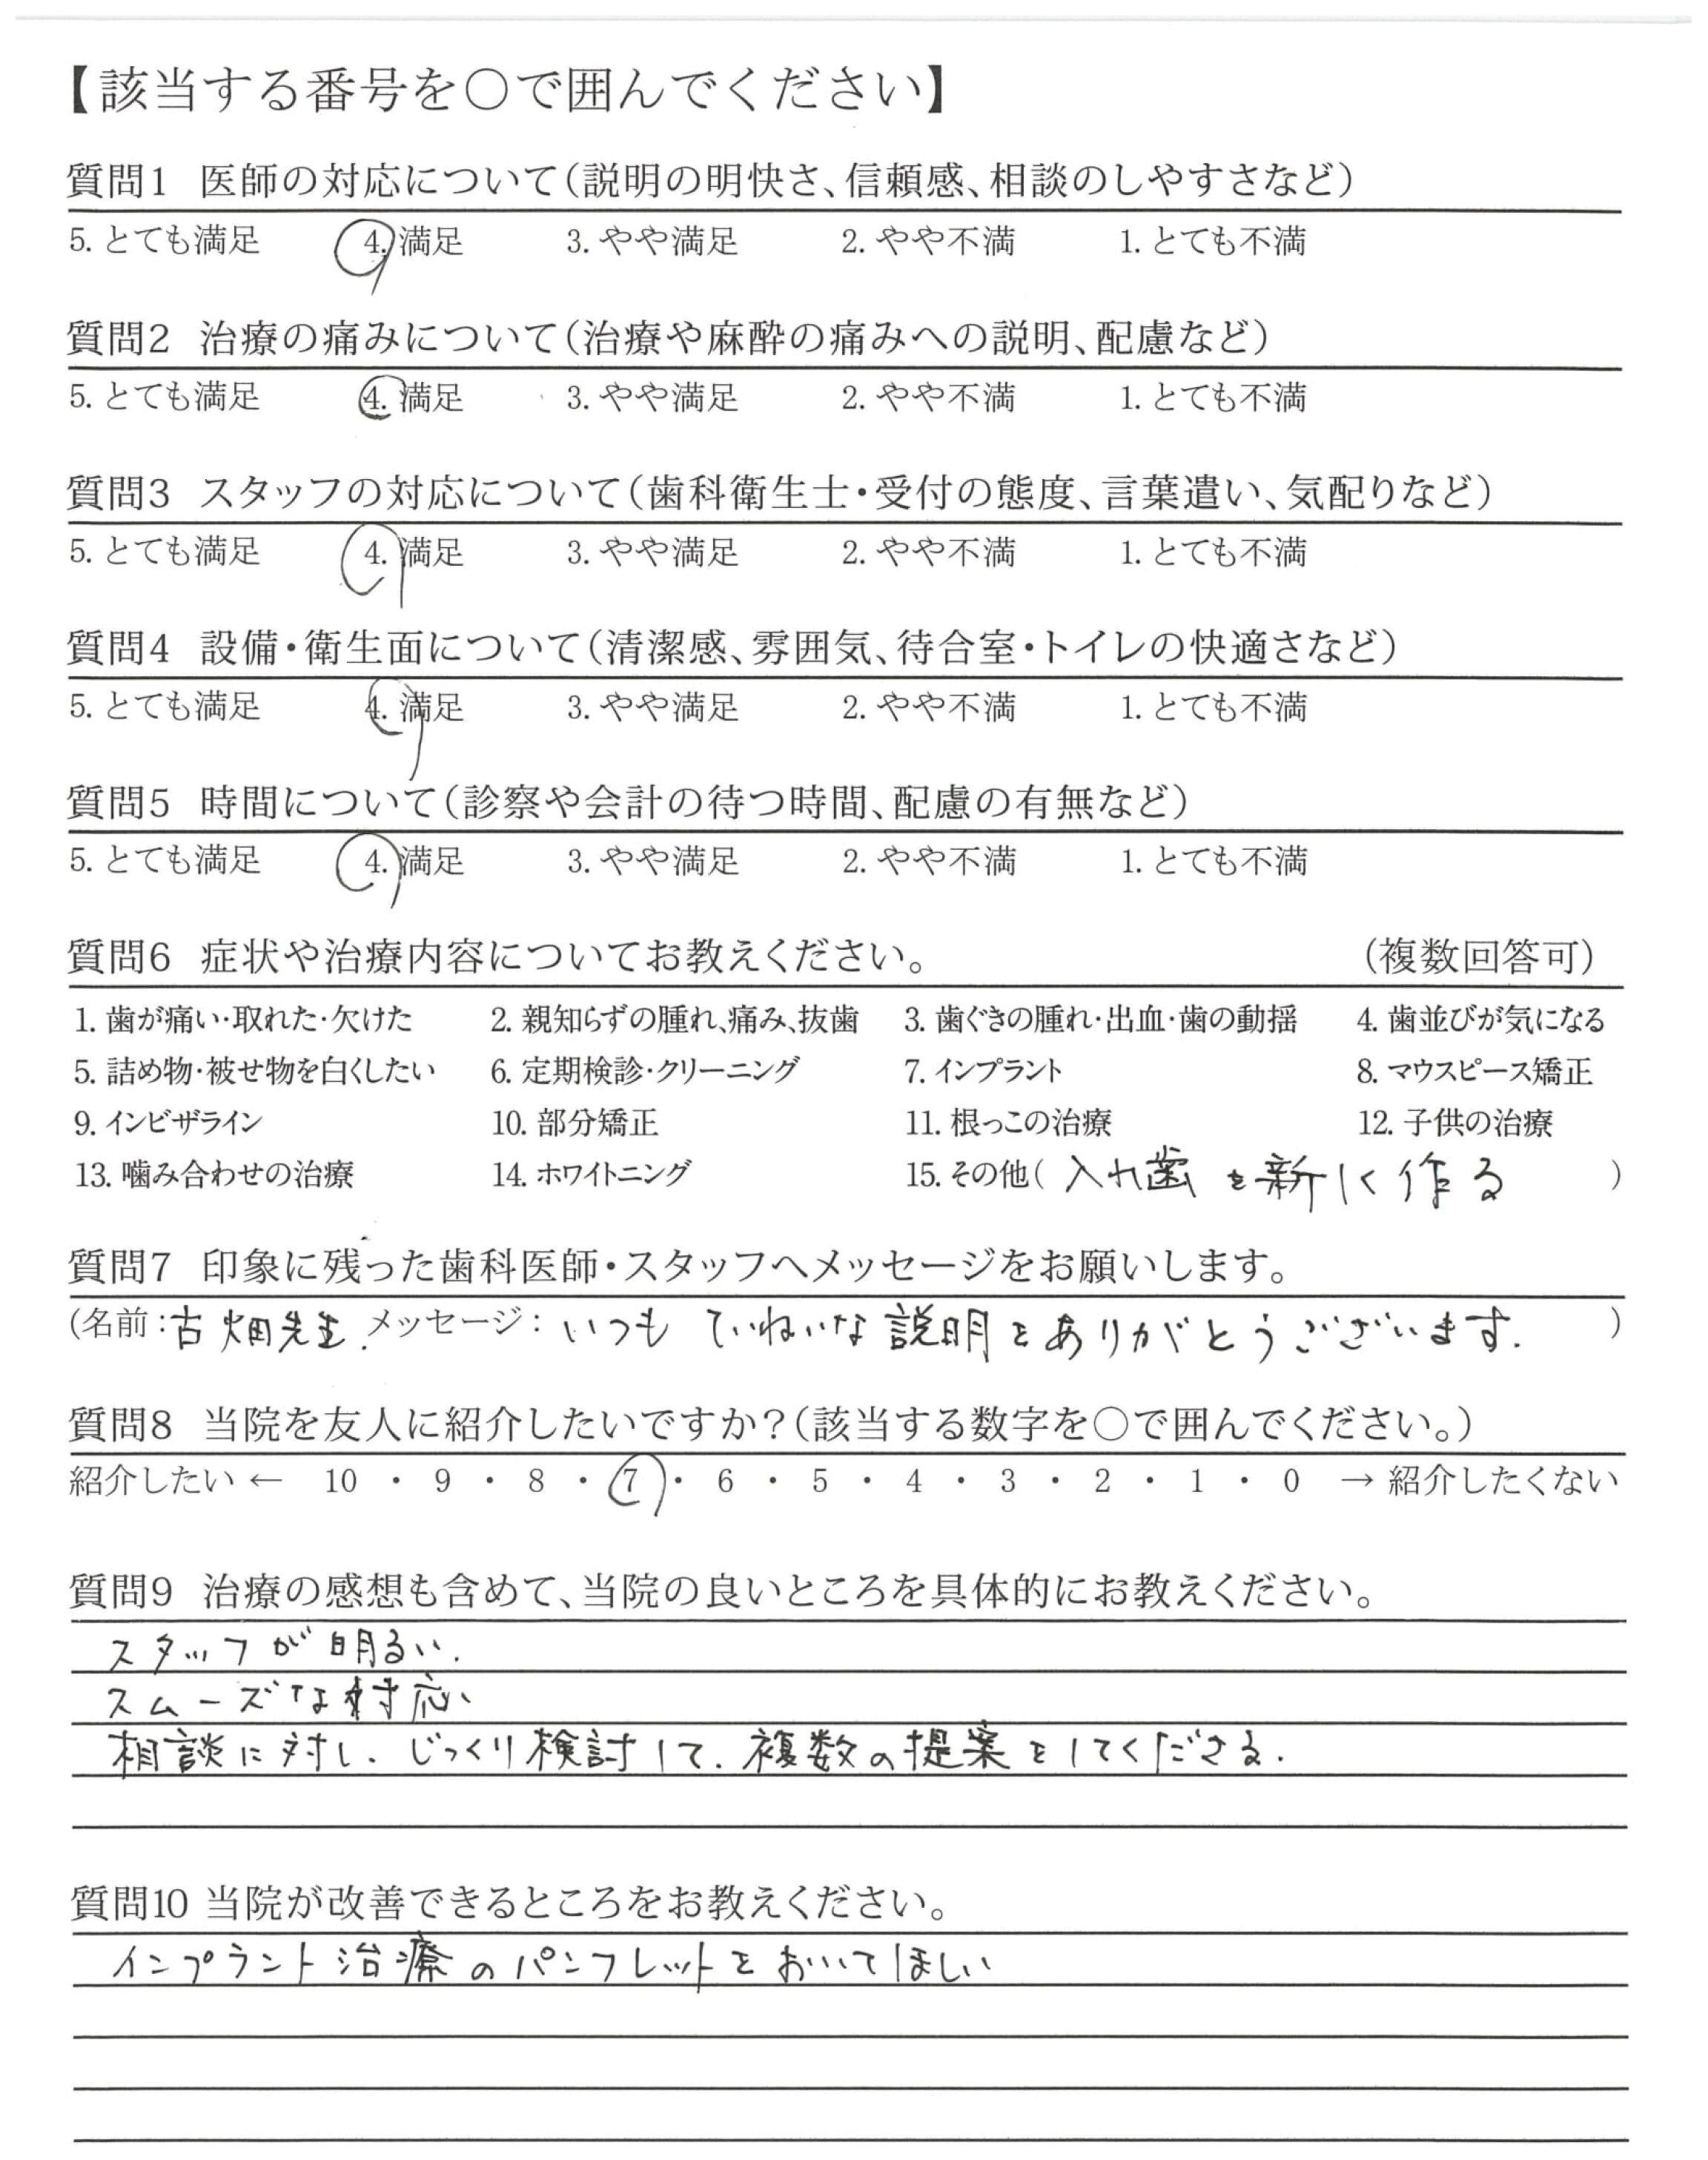 【該当する番号を○で囲んでください】
質問1 医師の対応について(説明の明快さ、信頼感、相談のしやすさなど)
5. とても満足 4. 満足 3. やや満足 2. やや不満 1. とても不満
質問2 治療の痛みについて(治療や麻酔の痛みへの説明、配慮など)
5. とても満足 4. 満足 3. やや満足 2. やや不満 1. とても不満
質問3 スタッフの対応について(歯科衛生士・受付の態度、言葉遣い、気配りなど)
5. とても満足 4. 満足 3. やや満足 2. やや不満 1. とても不満
質問4 設備・衛生面について(清潔感、雰囲気、待合室・トイレの快適さなど)
5. とても満足 4. 満足 3. やや満足 2. やや不満 1. とても不満
質問5 時間について(診察や会計の待つ時間、配慮の有無など)
5. とても満足 4. 満足 3. やや満足 2. やや不満 1. とても不満
質問6 症状や治療内容についてお教えください。 (複数回答可)
1. 歯が痛い・取れた・欠けた 2. 親知らずの腫れ、痛み、抜歯 3. 歯ぐきの腫れ・出血・歯の動揺 4. 歯並びが気になる
5. 詰め物・被せ物を白くしたい 6. 定期検診・クリーニング 7. インプラント 8. マウスピース矯正
9. インビザライン 10. 部分矯正 11. 根っこの治療 12. 子供の治療
13. 噛み合わせの治療 14. ホワイトニング 15. その他( 入れ歯を新しく作る )
質問7 印象に残った歯科医師・スタッフへメッセージをお願いします。
(名前:古畑先生. メッセージ: いつも ていねいな説明をありがとうございます. )
質問8 当院を友人に紹介したいですか?(該当する数字を○で囲んでください。)
紹介したい ← 10 ・ 9 ・ 8 ・ 7 ・ 6 ・ 5 ・ 4 ・ 3 ・ 2 ・ 1 ・ 0 → 紹介したくない
質問9 治療の感想も含めて、当院の良いところを具体的にお教えください。
スタッフが明るい.
スムーズな対応
相談に対し、じっくり検討して、複数の提案をしてくださる.
質問10 当院が改善できるところをお教えください。
インプラント治療のパンフレットをおいてほしい